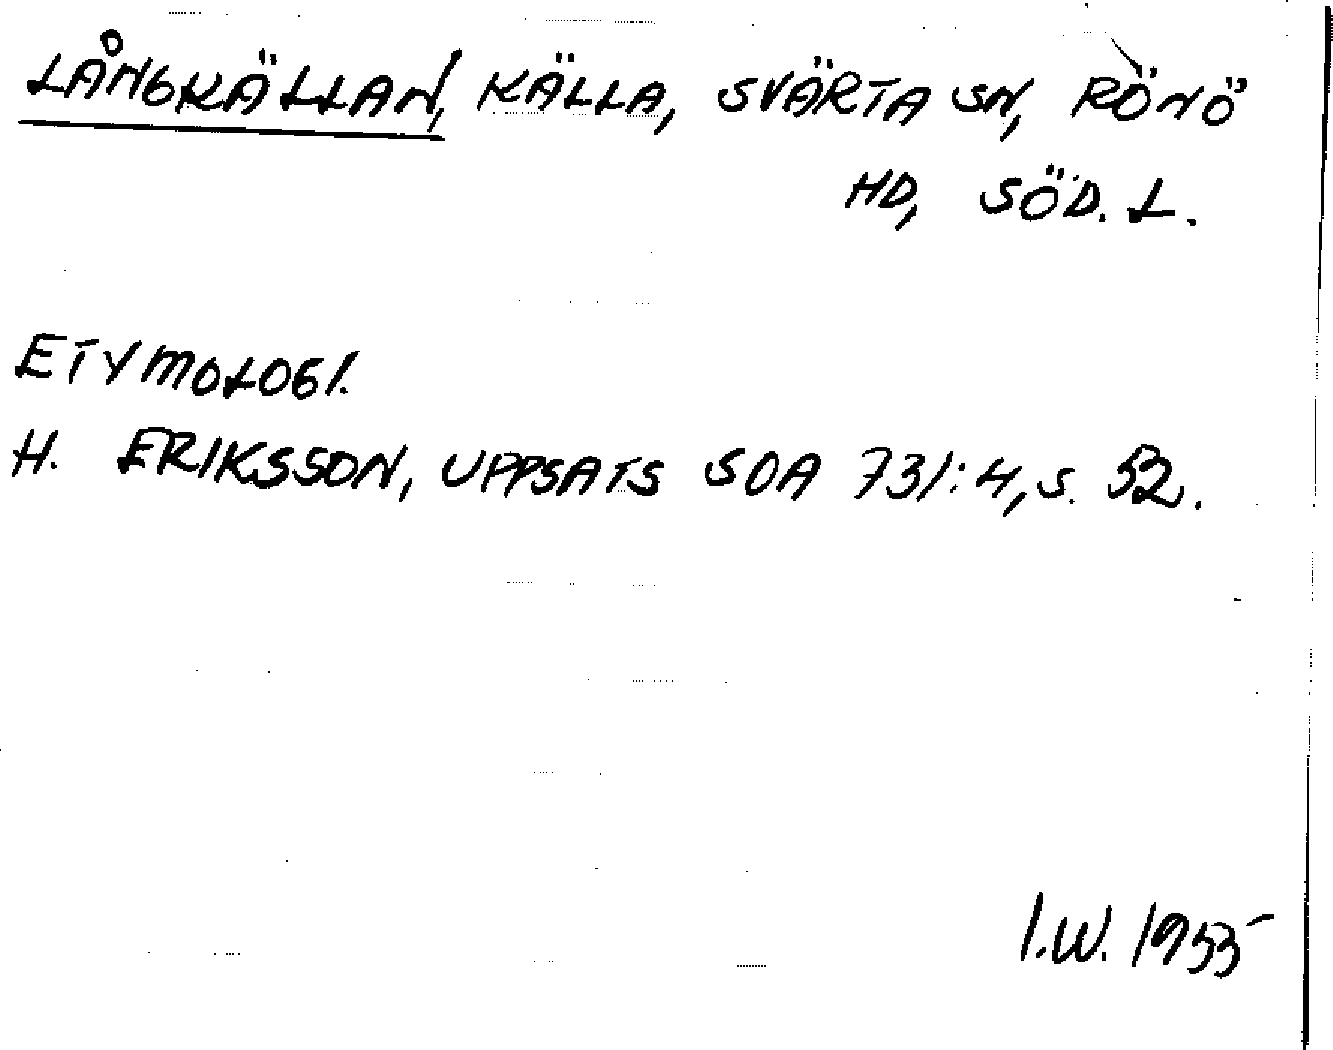 LÅNGKÄLLAN, KÄLLA, SVÄRTA SN, RÖNÖ
HD, SÖD. L.
ETYMOLOGI.
H. ERIKSSON, UPPSATS SOA 731:4, S. 52.
I.W. 1955